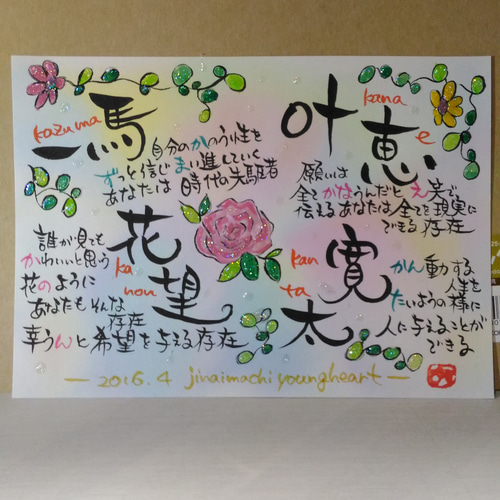 一馬
kazuma
自分のかのう性を
ずっと信じまい進していく
あなたは時代の先駆者
叶恵
kana
e
願いは
全てかなうんだとえ笑で
伝えるあなたは全てを現実に
できる存在
花望
ka
non
誰が見ても
かわいいと思う
花のように
あなたもそんな
存在
幸うんと希望を与える存在
寛太
kan
ta
かん動する
人生を
たいようの様に
人に与えることが
できる
2016.4 jinaimachi youngheart